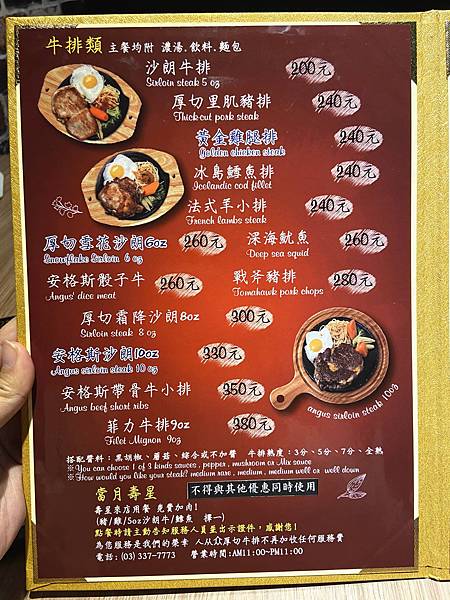 牛排類 主餐均附 濃湯.飲料.麵包
沙朗牛排 200元
Sirloin steak 5 oz
厚切里肌豬排 240元
Thick-cut pork steak
黃金雞腿排 240元
Golden chicken steak
冰島鱈魚排 240元
Icelandic cod fillet
法式羊小排 240元
French lambs steak
厚切雪花沙朗6oz 260元
Snowflake Sirloin 6 oz
深海魷魚 260元
Deep sea squid
安格斯骰子牛 260元
Angus' dice meat
戰斧豬排 280元
Tomahawk pork chops
厚切霜降沙朗8oz 300元
Sirloin steak 8 oz
安格斯沙朗10oz 330元
Angus sirloin steak 10 oz
安格斯帶骨牛小排 350元
Angus beef short ribs
菲力牛排9oz 380元
Filet Mignon 9oz
angus sirloin steak 10oz
搭配醬料：黑胡椒、蘑菇、綜合或不加醬 牛排熟度：3分、5分、7分、全熟
※You can choose 1 of 3 kinds sauces , pepper , mushroom or Mix sauce
※How would you like your steak? medium rare , medium , medium well or well down
當月壽星 不得與其他優惠同時使用
壽星來店用餐 免費加肉!
(豬/雞/5oz沙朗牛/鱈魚 擇一)
點餐時請主動告知服務人員並出示證件，感謝您!
為您服務是我們的榮幸 人从众厚切牛排不再加收任何服務費
電話:(03) 337-7773 營業時間:AM11:00~PM11:00